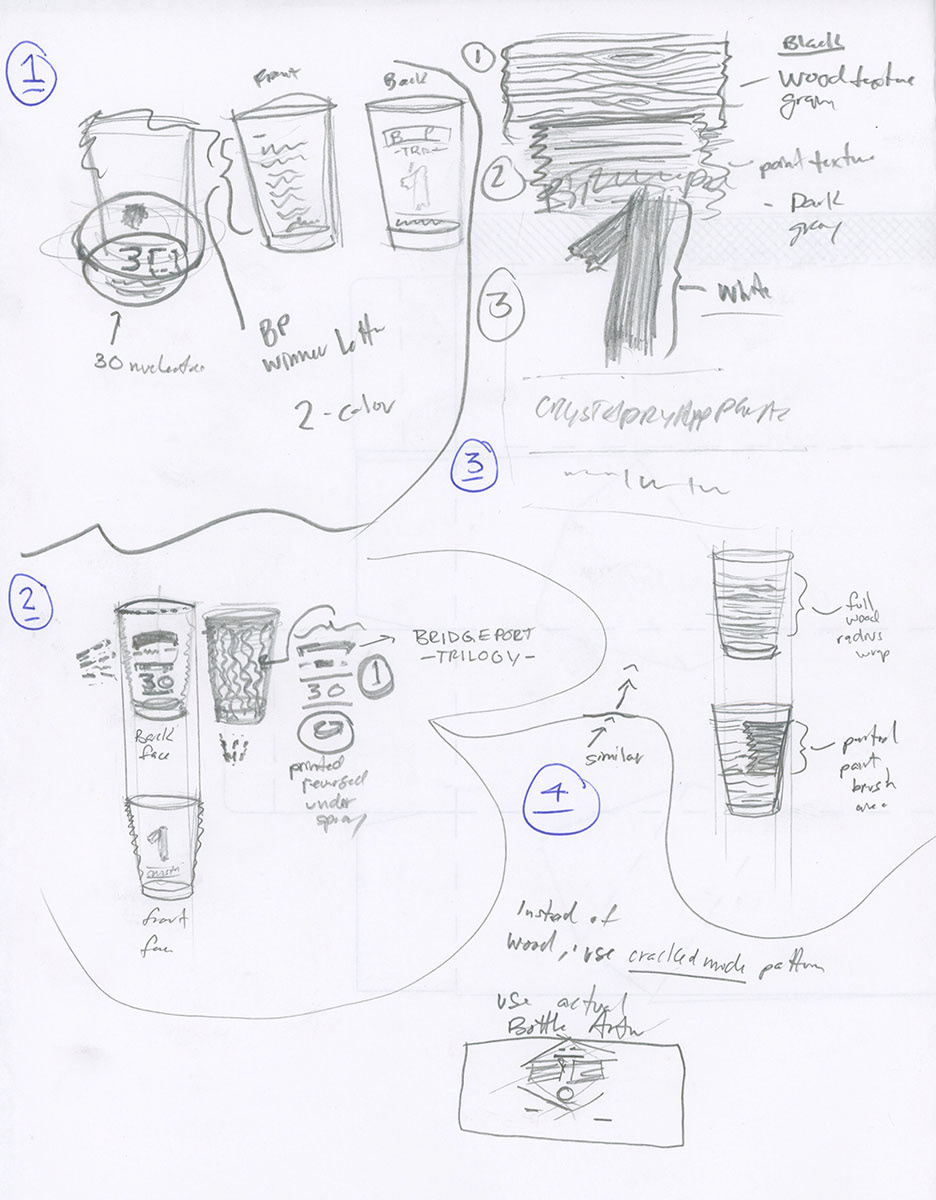 1
Front
Back
B P
-TRI-
1
30
BP
winner
2-color
1
Black
Wood texture
grain
2
paint texture
- Dark
gray
3
White
3
2
30
Back
face
1
front
face
BRIDGEPORT
-TRILOGY-
30
1
printed
reversed
under
spray
full
wood
radius
wrap
similar
4
partial
paint
brush
area
Instead of
wood, use cracked mode pattern
use actual
Bottle